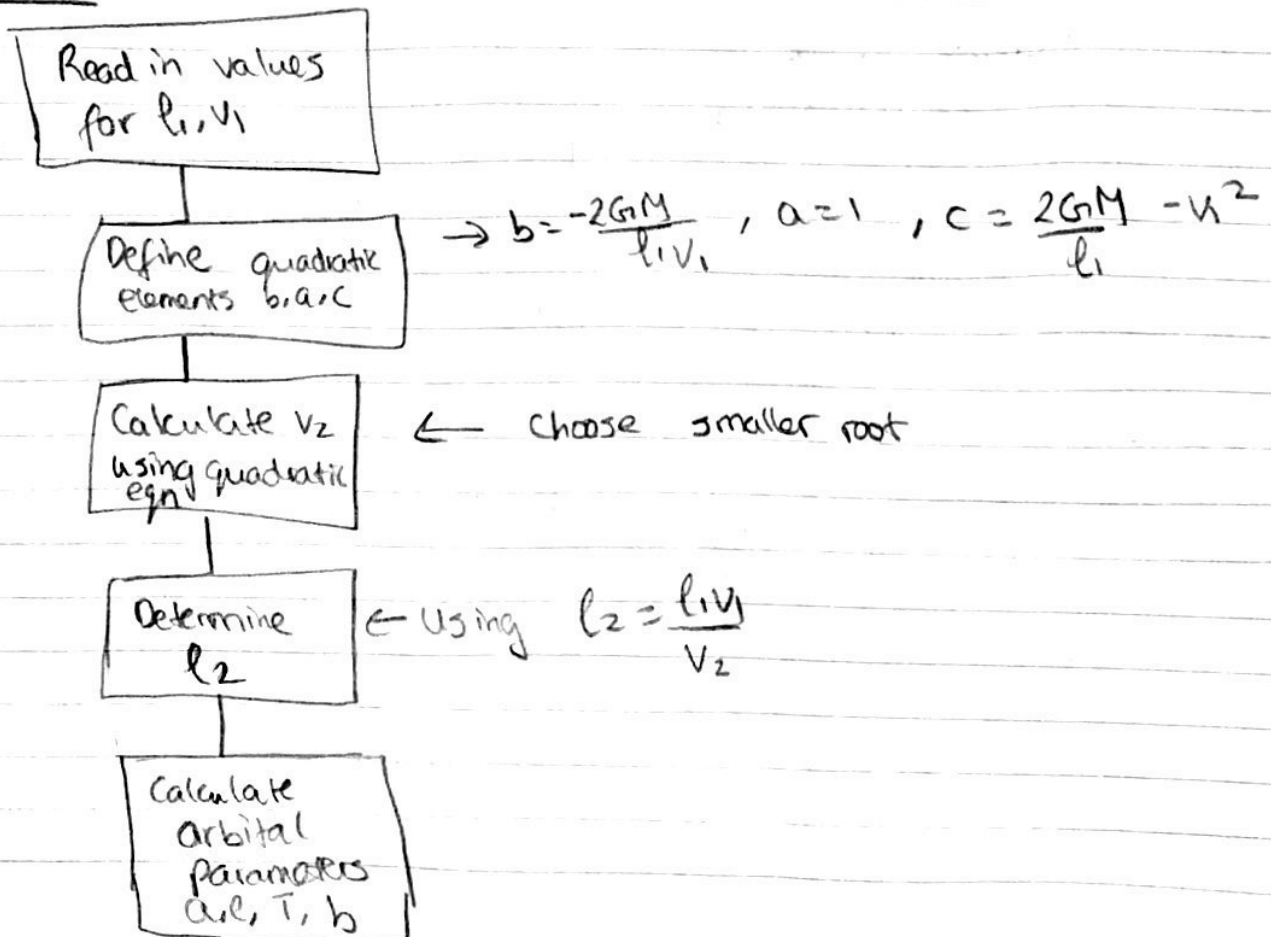 Read in values
for l₁, v₁
Define quadratic
elements b, a, c
→ b = -2GM/l₁v₁ , a = 1 , c = 2GM/l₁ - v₁²
Calculate v₂
using quadratic
eqn
← choose smaller root
Determine
l₂
← Using l₂ = l₁v₁/v₂
Calculate
arbital
parameters
a, e, T, b